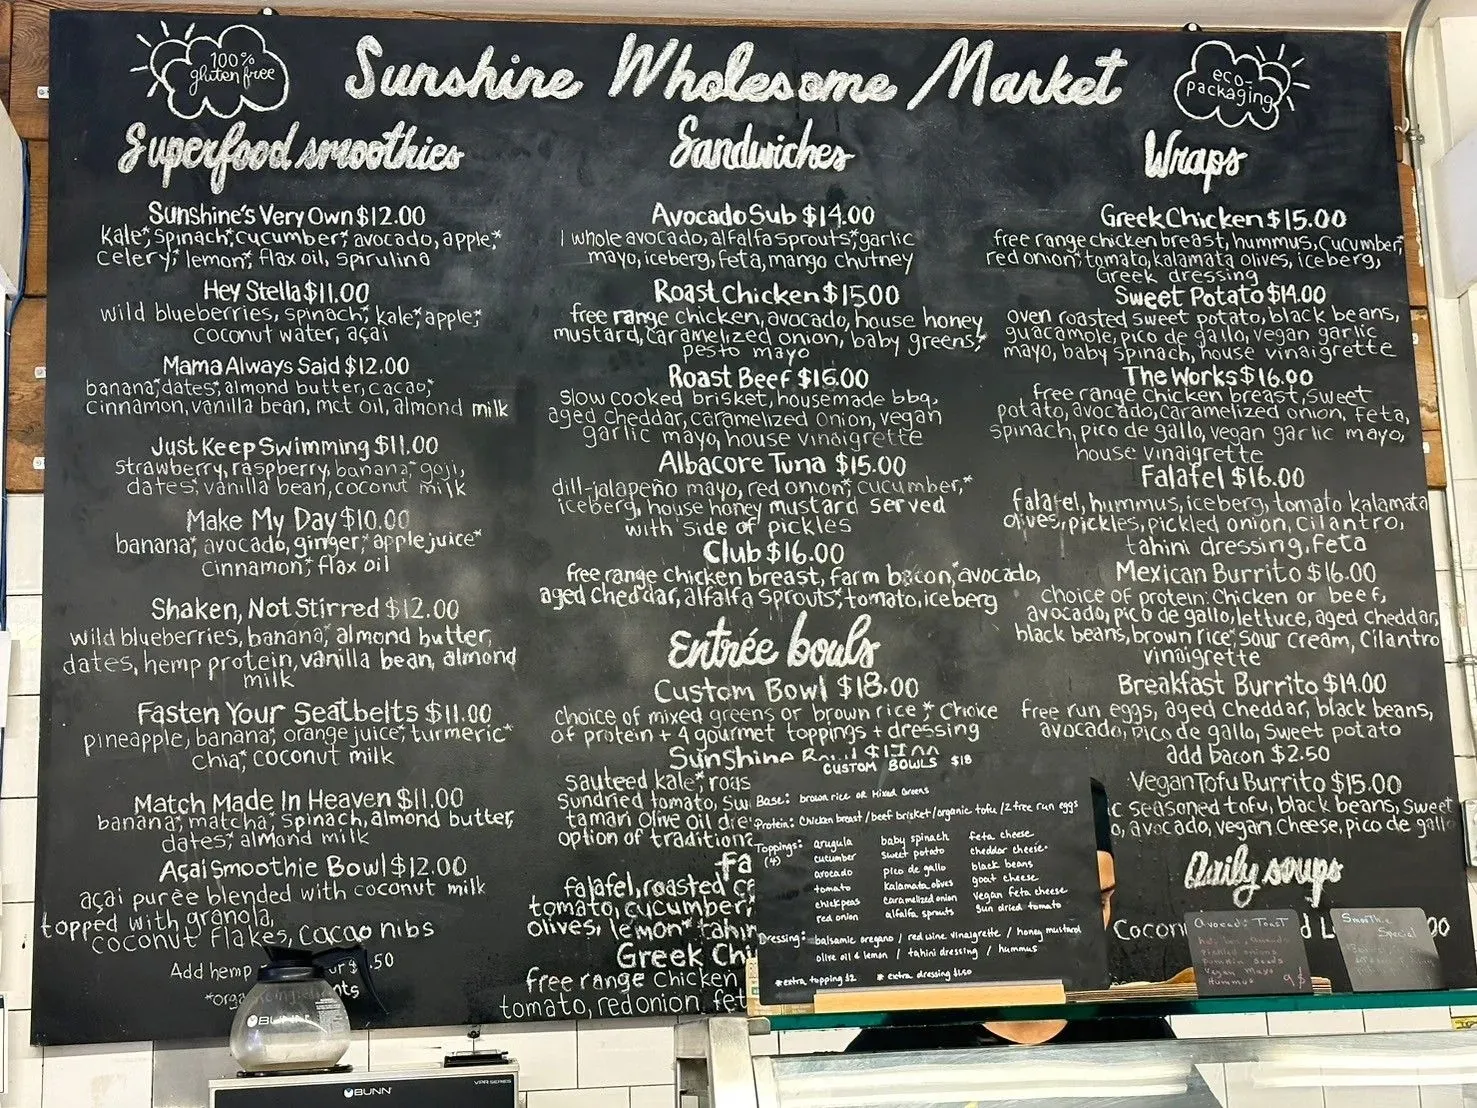 100%
gluten free
Sunshine Wholesome Market
eco-
packaging
Superfood smoothies
Sunshine's Very Own $12.00
kale*, spinach*, cucumber*, avocado, apple,*
celery,* lemon*, flax oil, spirulina
Hey Stella $11.00
wild blueberries, spinach,* kale,* apple,*
coconut water, açai
Mama Always Said $12.00
banana,* dates,* almond butter, cacao,*
cinnamon, vanilla bean, mct oil, almond milk
Just Keep Swimming $11.00
strawberry, raspberry, banana,* goji,
dates,* vanilla bean, coconut milk
Make My Day $10.00
banana*, avocado, ginger,* apple juice*
cinnamon,* flax oil
Shaken, Not Stirred $12.00
wild blueberries, banana,* almond butter,
dates, hemp protein, vanilla bean, almond
milk
Fasten Your Seatbelts $11.00
pineapple, banana,* orange juice,* turmeric*
chia,* coconut milk
Match Made In Heaven $11.00
banana,* matcha,* spinach, almond butter,
dates,* almond milk
Açai Smoothie Bowl $12.00
açai purèe blended with coconut milk
topped with granola,
coconut flakes, cacao nibs
Add hemp
.50
Sandwiches
Avocado Sub $14.00
1 whole avocado, alfalfa sprouts,* garlic
mayo, iceberg, feta, mango chutney
Roast Chicken $15.00
free range chicken, avocado, house honey
mustard, caramelized onion, baby greens,*
pesto mayo
Roast Beef $16.00
slow cooked brisket, housemade bbq,
aged cheddar, caramelized onion, vegan
garlic mayo, house vinaigrette
Albacore Tuna $15.00
dill-jalapeño mayo, red onion,* cucumber,*
iceberg, house honey mustard served
with side of pickles
Club $16.00
free range chicken breast, farm bacon, avocado,
aged cheddar, alfalfa sprouts,* tomato, iceberg
Entrée bowls
Custom Bowl $18.00
choice of mixed greens or brown rice,* choice
of protein + 4 gourmet toppings + dressing
Sunshine
sauteed kale,*
sundried tomato,
tamari olive oil
option of
falafel, roasted
tomato, cucumber,
olives, lemon*
Greek
free range chicken
tomato, red onion,
Wraps
Greek Chicken $15.00
free range chicken breast, hummus, cucumber,*
red onion,* tomato, kalamata olives, iceberg,
Greek dressing
Sweet Potato $14.00
oven roasted sweet potato, black beans,
guacamole, pico de gallo, vegan garlic
mayo, baby spinach, house vinaigrette
The Works $16.00
free range chicken breast, sweet
potato, avocado, caramelized onion, feta,
spinach, pico de gallo, vegan garlic mayo,
house vinaigrette
Falafel $16.00
falafel, hummus, iceberg, tomato kalamata
olives, pickles, pickled onion, cilantro,
tahini dressing, feta
Mexican Burrito $16.00
choice of protein: Chicken or beef,
avocado, pico de gallo, lettuce, aged cheddar,
black beans, brown rice,* sour cream, cilantro
vinaigrette
Breakfast Burrito $14.00
free run eggs, aged cheddar, black beans,
avocado, pico de gallo, sweet potato
add bacon $2.50
Vegan Tofu Burrito $15.00
seasoned tofu, black beans, sweet
avocado, vegan cheese, pico de gallo
Daily soups
CUSTOM BOWLS $18
Base: brown rice or Mixed Greens
Protein: Chicken breast / beef brisket / organic tofu / 2 free run eggs
Toppings: arugula baby spinach feta cheese
(4) cucumber sweet potato cheddar cheese
avocado pico de gallo black beans
tomato kalamata olives goat cheese
chickpeas caramelized onion vegan feta cheese
red onion alfalfa sprouts sun dried tomato
Dressing: balsamic oregano / red wine vinaigrette / honey mustard
olive oil & lemon / tahini dressing / hummus
*extra topping $2 *extra dressing $1.50
Avocado Toast
Pickled onions
Pumpkin Seeds
Vegan Mayo
Hummus 9$
Smoothie
Special
BUNN
BUNN
VPR SERIES